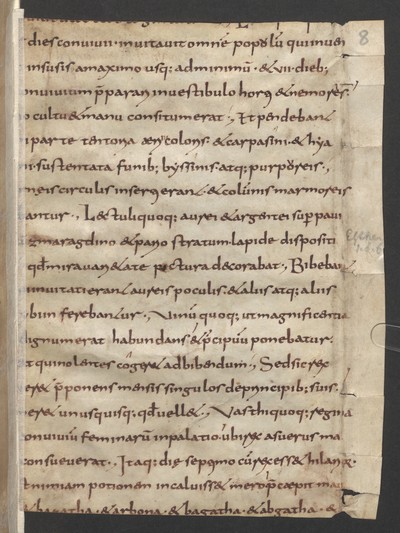 8
dies conuiuii inuitauit omnē popułū qui inuen
insusis amaximo usq; adminimū · & vii dieb;
onuiuium p̄parari inuestibulo horti & nemoris
o cultu & manu consitum erat · Et pendeban&
i parte tentoria aerii coloris · & carpasini · & hya
ni · sustentata funib; byssinis atq; purpureis ·
neis circulis inserti erant · & columnis marmoreis
antur · Lectuli quoq; aurei & argentei sup̄ paui
zmaragdino & pario stratum lapide dispositi
qđ mira uari&ate pictura decorabat · Bibeban
inuitati erant aureis poculis · & aliis atq; aliis
cibi inferebantur · Uinū quoq; ut magnificentia
dignum erat habundans & p̄cipuū ponebatur ·
t qui nolentes coger& ad bibendum · Sed sic rex
er& p̄ponens mensis singulos deprincipib; suis ·
er& unusquisq; qđ uell& · Uasthi quoq; regina
onuiuiū feminarū inpalatio ubi rex asuerus ma
onsueuerat · Itaq; die septimo cū rex ess& hilarior
t nimiam potionem incaluiss& mero p̄cepit mau
bazatha · & arbona · & bagatha · & abgatha · &